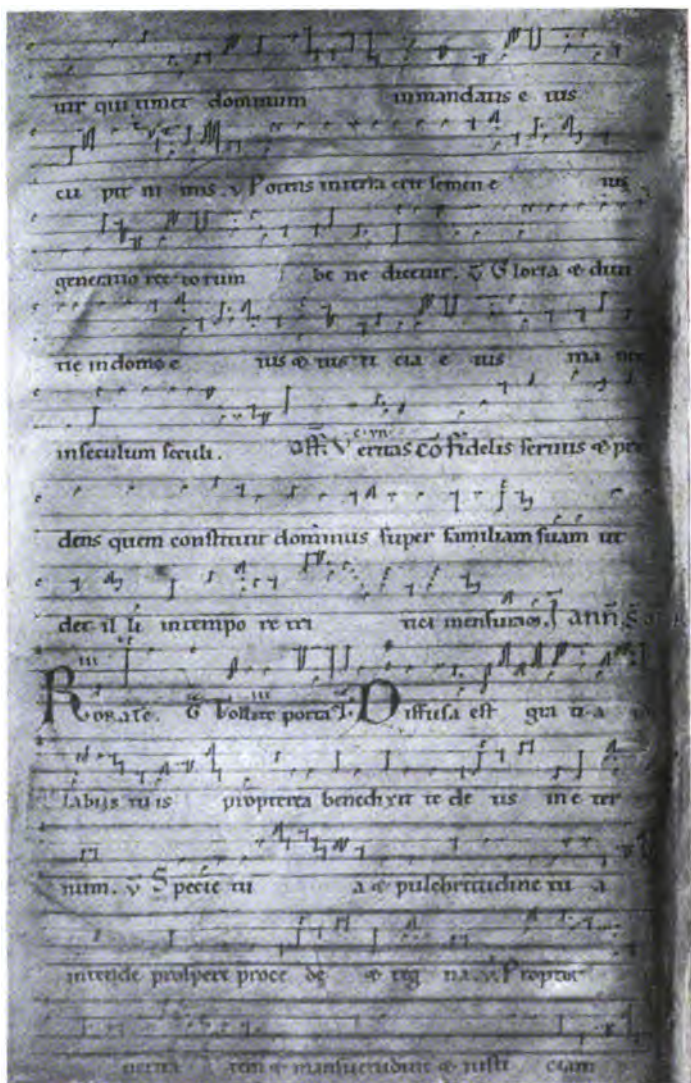 uir qui timet dominum in mandatis e ius
cu pit ni mis. v Potens in terra erit semen e ius
generatio rec to rum be ne dicetur. v Gloria & diui
tie in domo e ius & ius ti cia e ius ma net
in seculum seculi. off. Veritas cō Fidelis seruus & pru
dens quem constituit dominus super familiam suam ut
det il li in tempo re tri tici mensuram. ann̄
Rorate. G̅ Tollite porta Diffusa est gra ti a
labiis tu is propterea benedixit te de us in e ter
num. v Specie tu a & pulchritudine tu a
intende prospere proce de & reg na. v. Propter
uerita tem & mansuetudine & iusti ciam